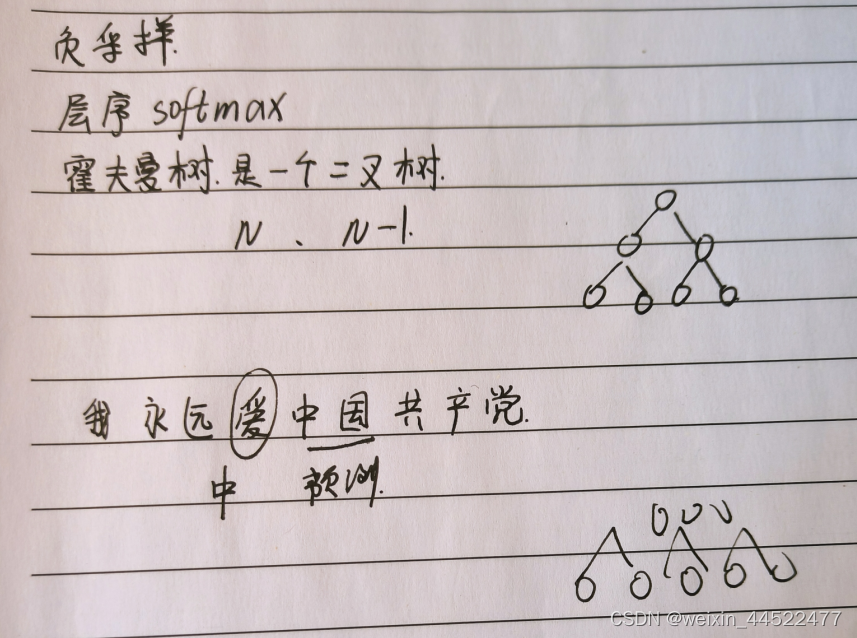 负采样.
层序 softmax
霍夫曼树.是一个二叉树.
N 、 N-1.
我 永 远 爱 中 国 共 产 党.
中 预测.
CSDN @weixin_44522477